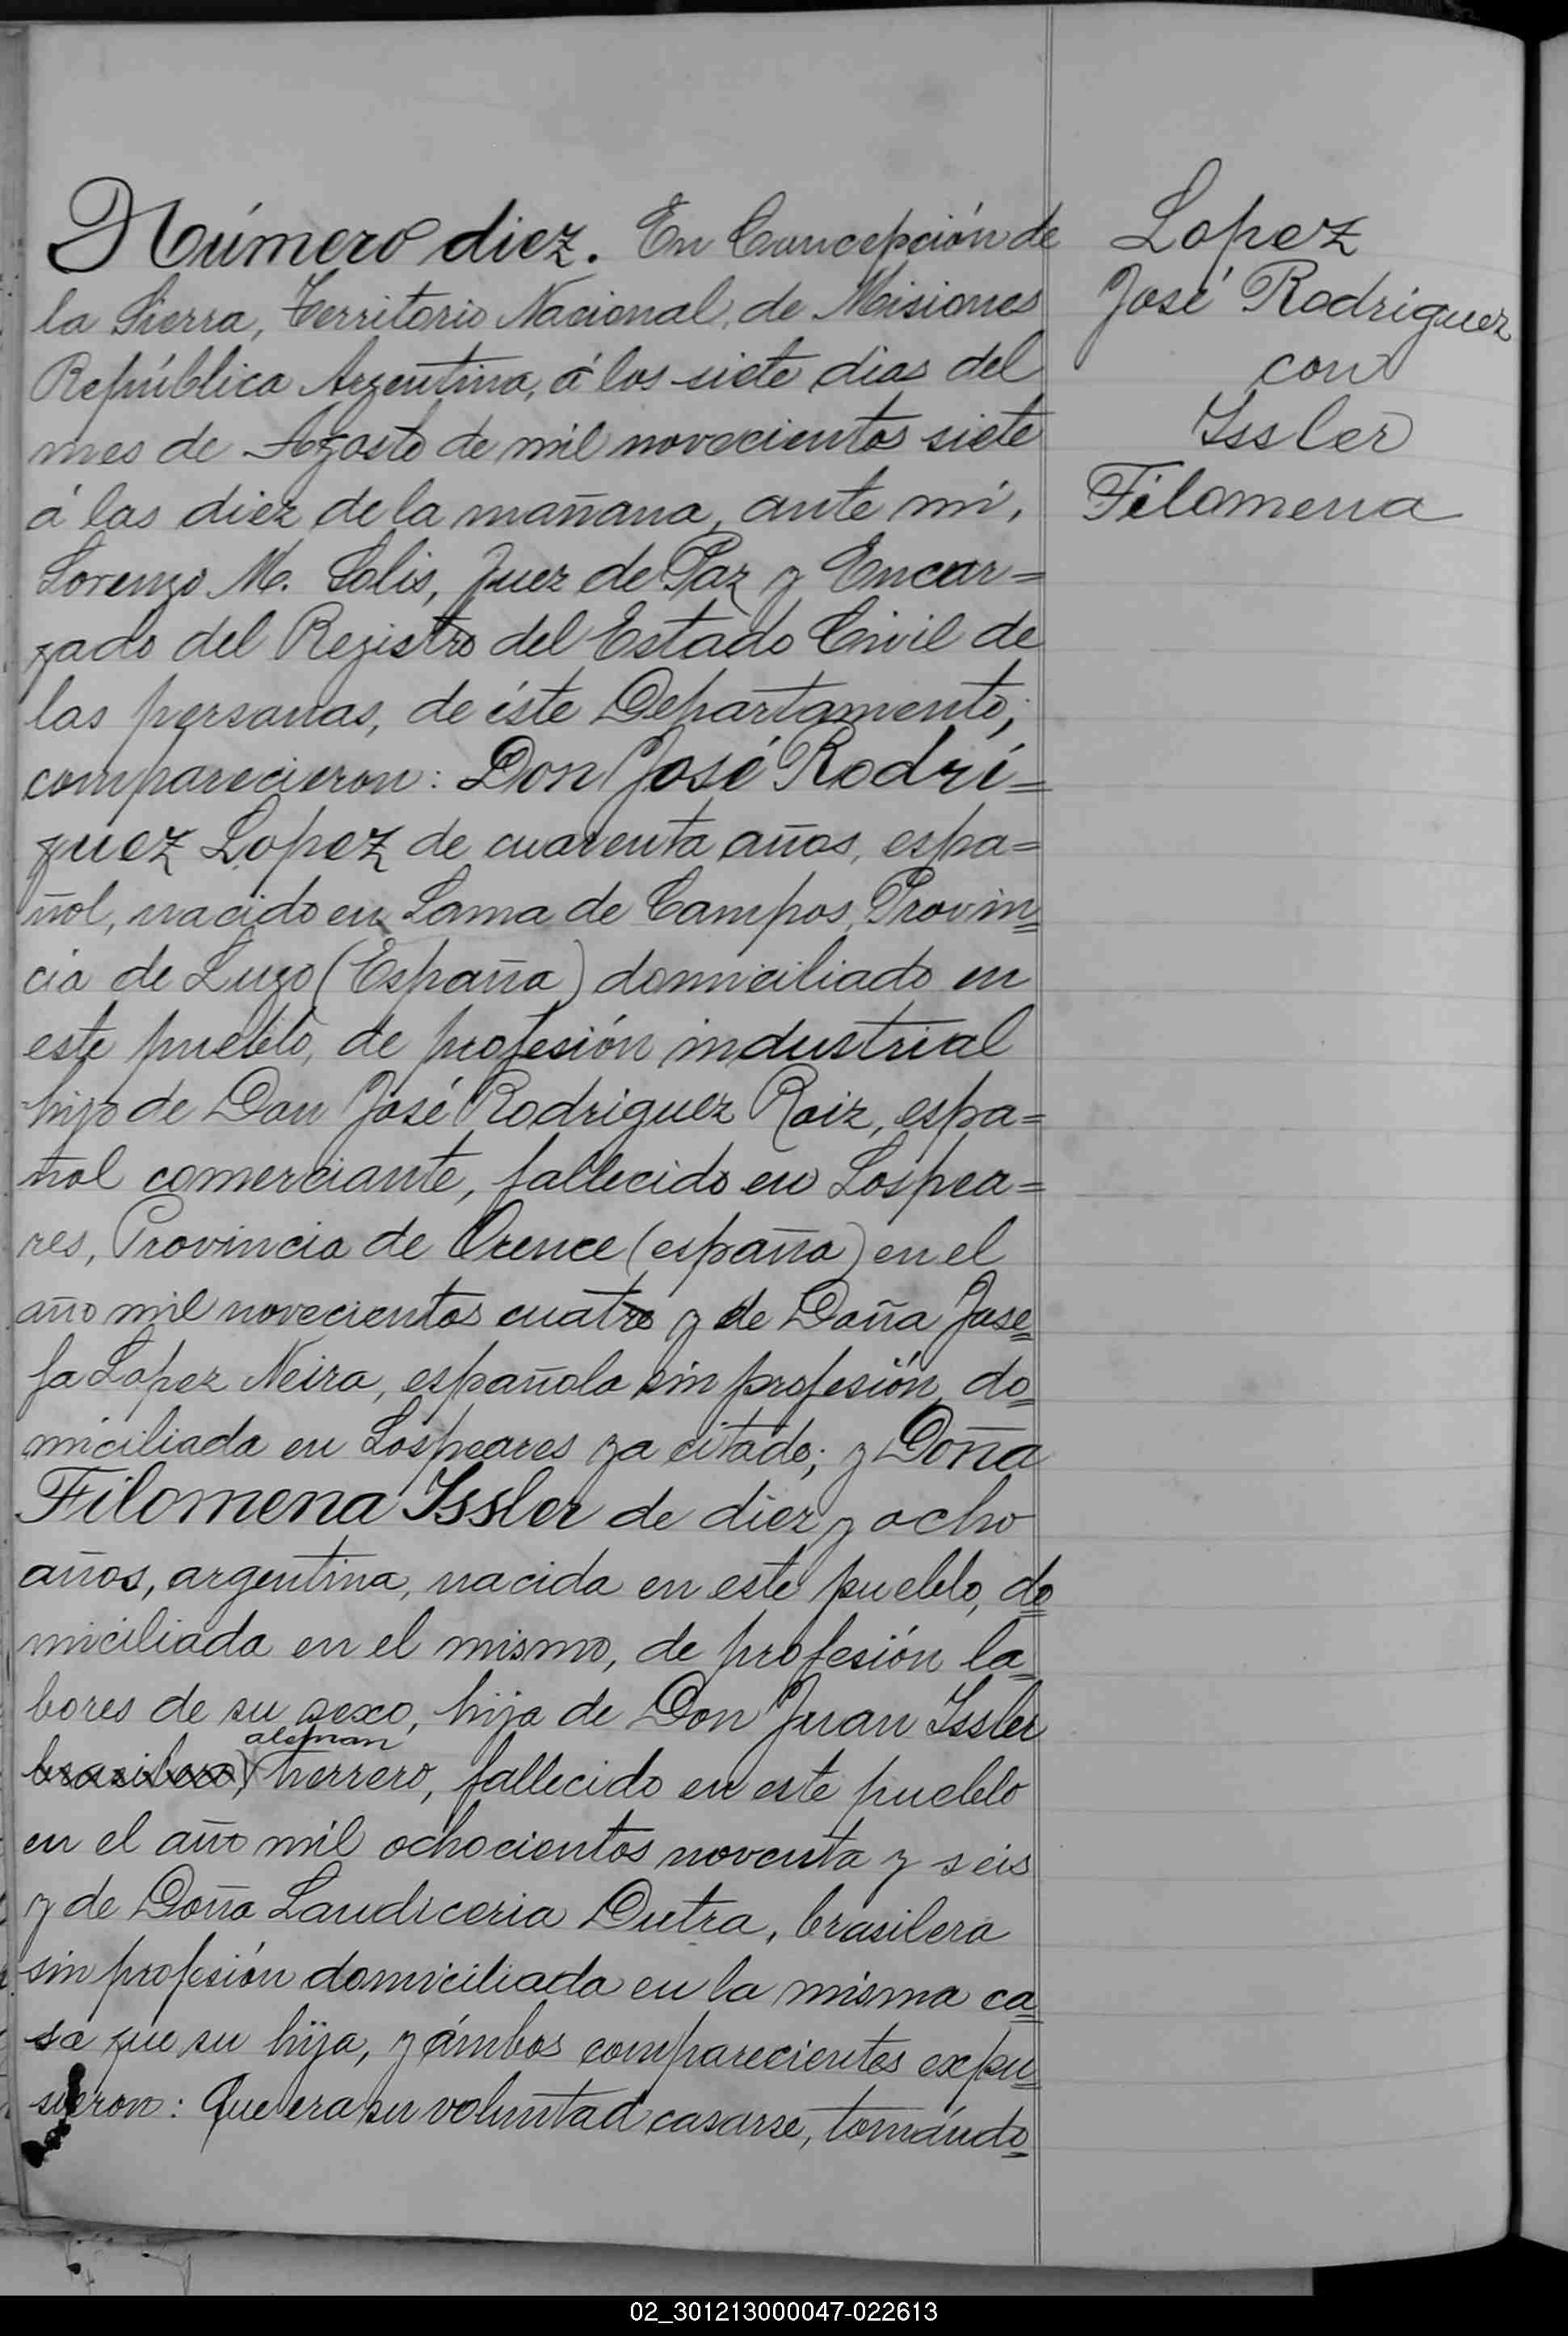 Número diez. En Concepción de
la Sierra, Territorio Nacional de Misiones
República Argentina, á los siete dias del
mes de Agosto de mil novecientos siete
á las diez de la mañana, ante mi,
Lorenzo M. Solis, Juez de Paz y Encar=
gado del Registro del Estado Civil de
las personas, de éste Departamento;
comparecieron: Don José Rodrí=
guez Lopez de cuarenta años, espa=
ñol, nacido en Lama de Campos, Provin=
cia de Lugo (España) domiciliado en
este pueblo, de profesión industrial
hijo de Don José Rodriguez Roiz, espa=
ñol comerciante, fallecido en Lospea=
res, Provincia de Orence (españa) en el
año mil novecientos cuatro y de Doña Jose=
fa Lopez Neira, española sin profesión, do=
miciliada en Lospeares ya citado; y Doña
Filomena Issler de diez y ocho
años, argentina, nacida en este pueblo, do=
miciliada en el mismo, de profesión la=
bores de su sexo, hija de Don Juan Issler
aleman
brasilero, herrero, fallecido en este pueblo
en el año mil ochocientos noventa y seis
y de Doña Laudiceria Dutra, brasilera
sin profesión domiciliada en la misma ca=
sa que su hija, y ámbos comparecientes expu=
sieron: Que era su voluntad casarse, tomándo=
Lopez
José Rodriguez
con
Issler
Filomena
02_301213000047-022613